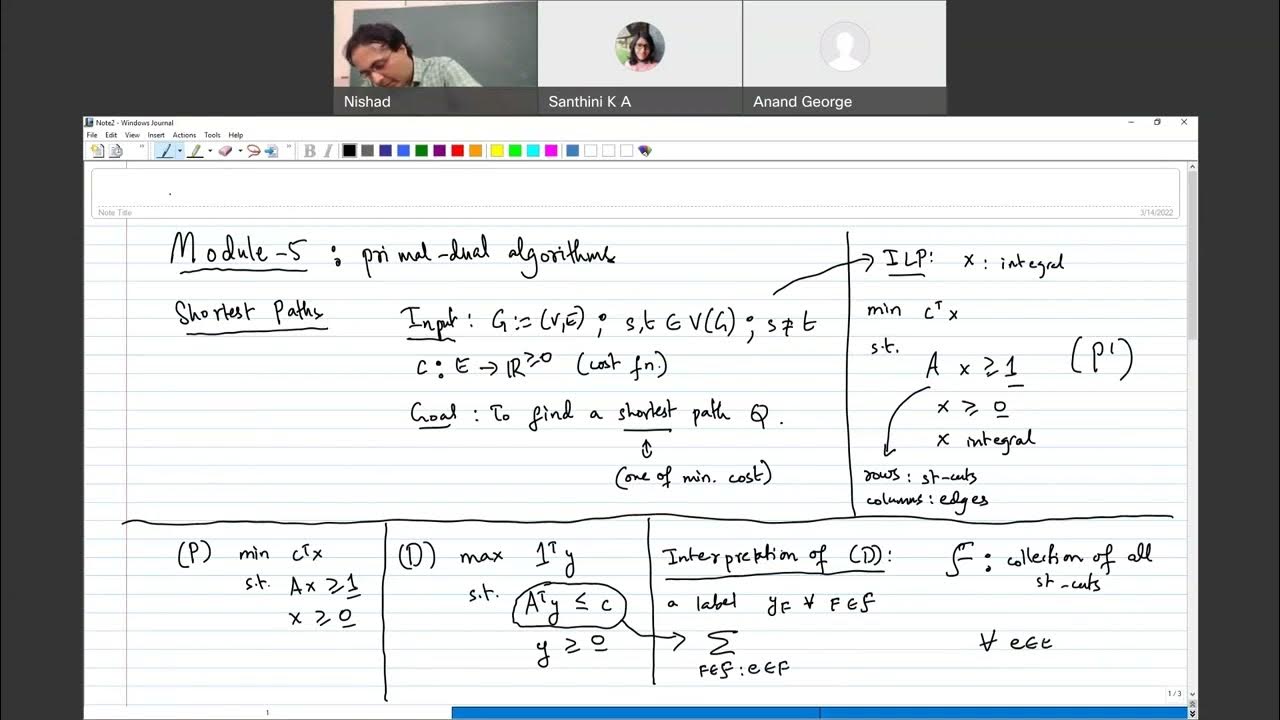 Nishad
Santhini K A
Anand George
Note2 - Windows Journal
File Edit View Insert Actions Tools Help
B I
Note Title
3/14/2022
Module-5 : primal-dual algorithms
Shortest Paths
Input : G := (V,E) ; s,t ∈ V(G) ; s ≠ t
c : E → ℝ≥0 (cost fn.)
Goal : To find a shortest path Q.
(one of min. cost)
ILP: x : integral
min cᵀx
s.t.
A x ≥ 1 (P')
x ≥ 0
x integral
rows : st-cuts
columns : edges
(P) min cᵀx
s.t. Ax ≥ 1
x ≥ 0
(D) max 1ᵀy
s.t. Aᵀy ≤ c
y ≥ 0
Interpretation of (D):
ℱ : collection of all
st-cuts
a label y_F ∀ F∈ℱ
∑ ∀ e∈E
F∈ℱ : e∈F
1 / 3
1